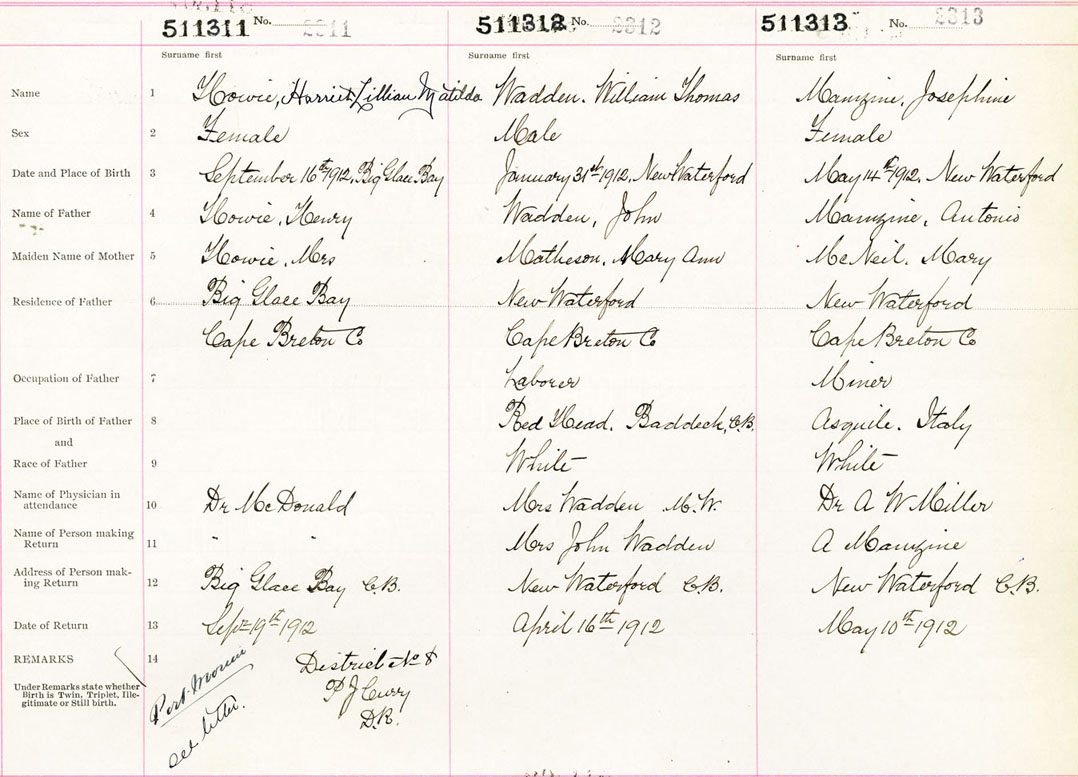 511311 No. 2311 511312 No. 2312 511313 No. 2313
Surname first Surname first Surname first
Name 1 Howie, Harriet Lillian Matilda Wadden. William Thomas Mamzine, Josephine
Sex 2 Female Male Female
Date and Place of Birth 3 September 16th 1912, Big Glace Bay January 31st 1912. New Waterford May 14th 1912. New Waterford
Name of Father 4 Howie, Henry Wadden, John Mamzine, Antonio
Maiden Name of Mother 5 Howie, Mrs Matheson, Mary Ann McNeil. Mary
Residence of Father 6 Big Glace Bay New Waterford New Waterford
Cape Breton Co Cape Breton Co Cape Breton Co
Occupation of Father 7 Laborer Miner
Place of Birth of Father 8 Red Head. Baddeck, C.B. Asquile. Italy
and
Race of Father 9 White White
Name of Physician in
attendance 10 Dr McDonald Mrs Wadden M.W. Dr A W Miller
Name of Person making
Return 11 " " Mrs John Wadden A Mamzine
Address of Person mak-
ing Return 12 Big Glace Bay C.B. New Waterford C.B. New Waterford C.B.
Date of Return 13 Sept 19th 1912 April 16th 1912 May 10th 1912
REMARKS 14 Port Morien District No 8
Under Remarks state whether
Birth is Twin, Triplet, Ille-
gitimate or Still birth.
P J Curry
D.R.
see letter.